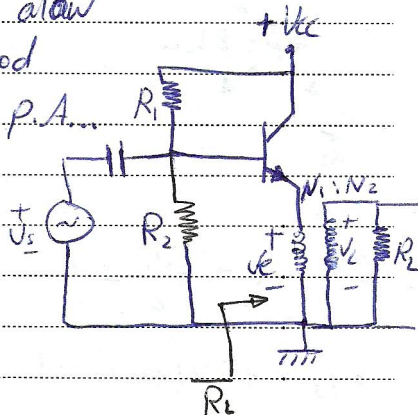 alow
od
P.A...
+Vcc
R1
N1:N2
+
Vs
-
R2
+
Ve
-
+
VL
-
RL
RL